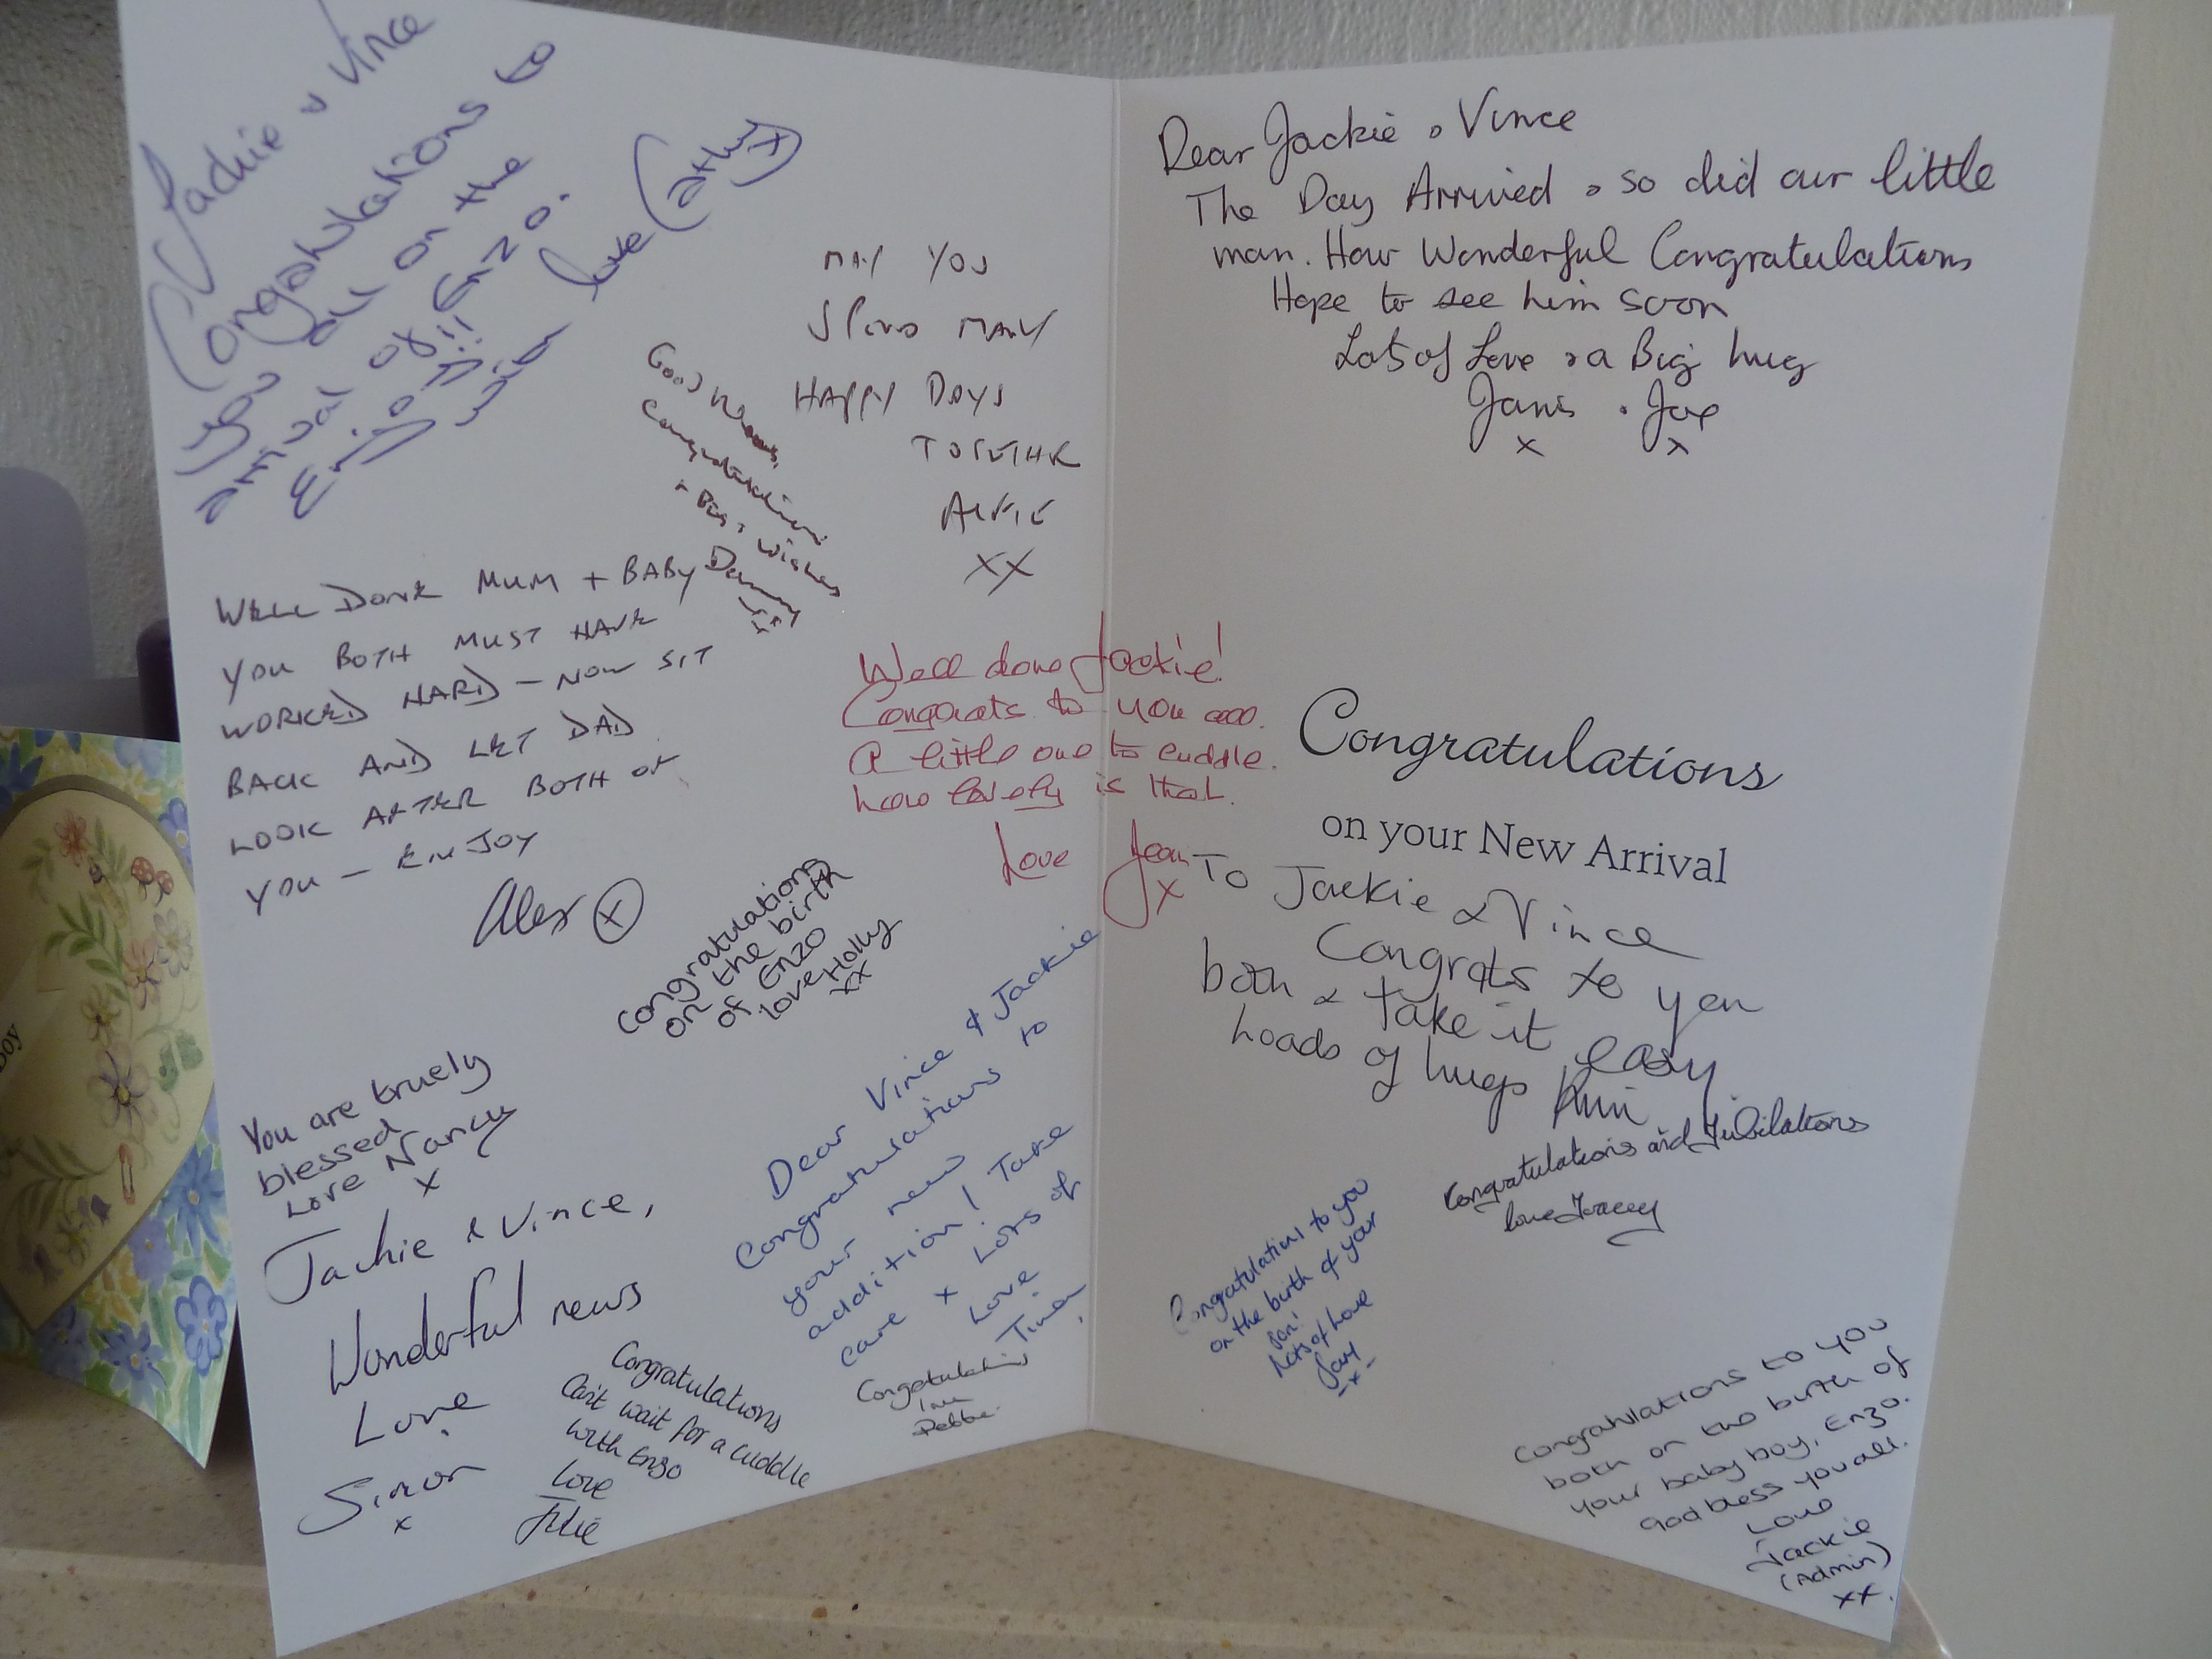 Jackie & Vince
Congratulations to
you all on the
arrival of Enzo.
Enjoy!!
with love Cathy x
MAY YOU
SPEND MANY
HAPPY DAYS
TOGETHR
ALFIE
XX
Good News,
Congratulations
+ Best Wishes
Danny
WELL DONE MUM + BABY
YOU BOTH MUST HAVE
WORKED HARD - NOW SIT
BACK AND LET DAD
LOOK AFTER BOTH OF
YOU - ENJOY
Alex x
Well done Jackie!
Congrats to you all.
A little one to cuddle.
how lovely is that.
Love Jean
x
Congratulations
on the birth
of Enzo
love Holly
xx
You are truely
blessed
Love Nancy
x
Dear Vince & Jackie
Congratulations to
your new
addition! Take
care x Lots of
Love
Jackie & Vince,
Wonderful news
Love
Simon
x
Congratulations
Can't wait for a cuddle
with Enzo
Love
Julie
Congratulations
Love
Debbie
Dear Jackie & Vince
The Day Arrived & so did our little
man. How Wonderful Congratulations
Hope to see him soon
Lots of Love & a Big hug
Janis & Joe
x x
Congratulations
on your New Arrival
To Jackie & Vince
Congrats to you
both & take it easy
Loads of hugs Kim
Congratulations and Jubilations
love Tracey
Congratulations to you
on the birth of your
son!
Lots of Love
-x-
Congratulations to you
both on the birth of
your baby boy, Enzo.
God bless you all.
Love
Jackie
(Admin)
xx
oy